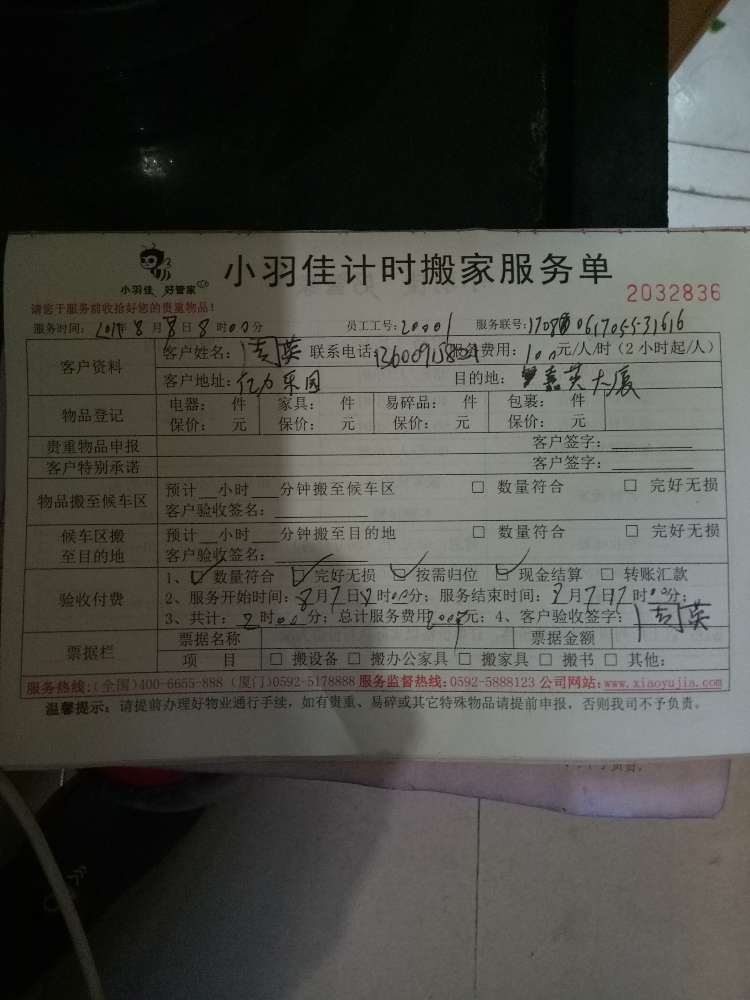 小羽佳 好管家
小羽佳计时搬家服务单
2032836
请您于服务前收拾好您的贵重物品！
服务时间： 年8月8日8时00分 员工工号：20001 服务联号：
客户资料 客户姓名： 英 联系电话： 服务费用：100元/人/时（2小时起/人）
客户地址：亿力乐园 目的地：嘉英大厦
物品登记 电器： 件 家具： 件 易碎品： 件 包裹： 件
保价： 元 保价： 元 保价： 元 保价： 元
贵重物品申报 客户签字：
客户特别承诺 客户签字：
物品搬至候车区 预计__小时___分钟搬至候车区 □ 数量符合 □ 完好无损
客户验收签名：
候车区搬至目的地 预计__小时___分钟搬至目的地 □ 数量符合 □ 完好无损
客户验收签名：
验收付费 1、☑ 数量符合 ☑ 完好无损 ☑ 按需归位 ☑ 现金结算 □ 转账汇款
2、服务开始时间：8月7日 时00分；服务结束时间： 月7日 时00分；
3、共计：2时00分；总计服务费用200元；4、客户验收签字： 英
票据栏 票据名称 票据金额
项 目 □ 搬设备 □ 搬办公家具 □ 搬家具 □ 搬书 □ 其他：
服务热线：(全国)400-6655-888 (厦门)0592-5178888 服务监督热线：0592-5888123 公司网站：www.xiaoyujia.com
温馨提示：请提前办理好物业通行手续，如有贵重、易碎或其它特殊物品请提前申报，否则我司不予负责。